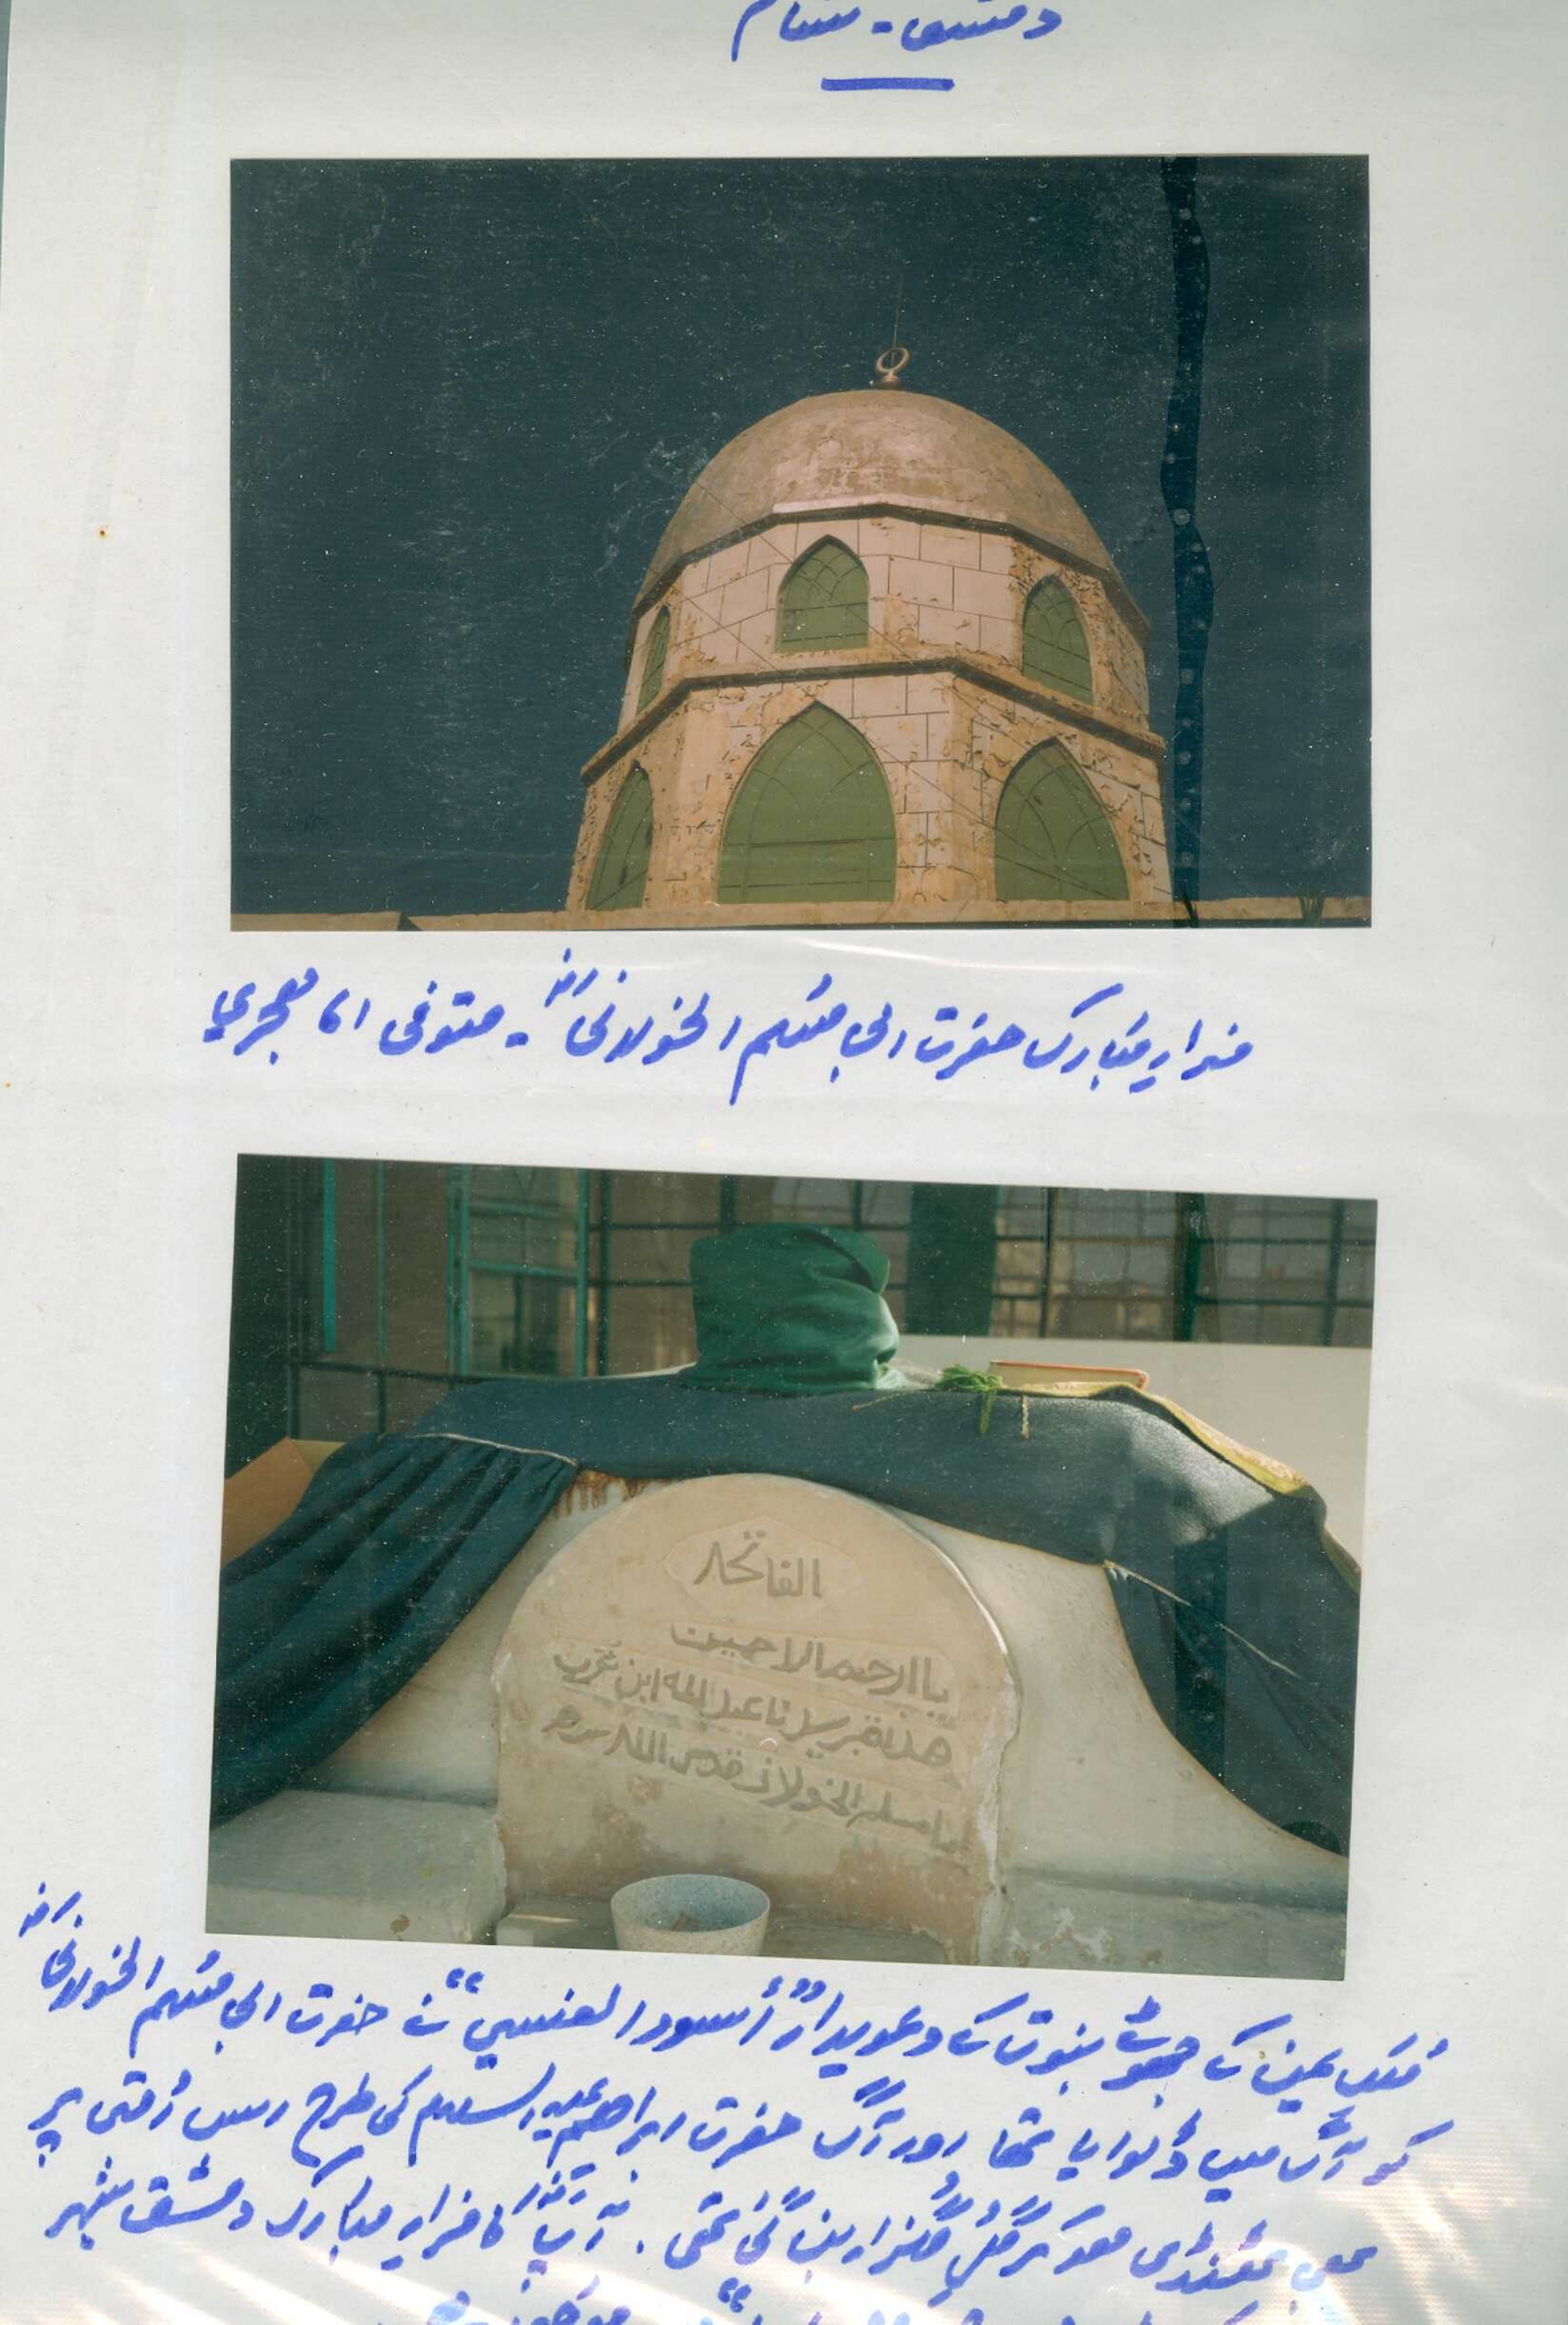 دمشق - شام
مزارِ مبارک حضرت ابی مسلم الخولانیؓ - متوفی ۱۷ ہجری
الفاتحة
يا ارحم الراحمين
هذا قبر سلانا عبد الله ابن
مسلم الخولاني قدس الله سره
ملکِ یمن کے جھوٹے نبوت کے دعویدار "أسود العنسي" نے حضرت ابی مسلم الخولانیؓ
کو آگ میں ڈلوایا تھا اور آگ حضرت ابراھیم علیہ السلام کی طرح اِس اُمتی پر
بھی ٹھنڈی ھو کر گُل گُلزار بن گئی تھی۔ آپؓ کا مزارِ مبارک دمشق شہر